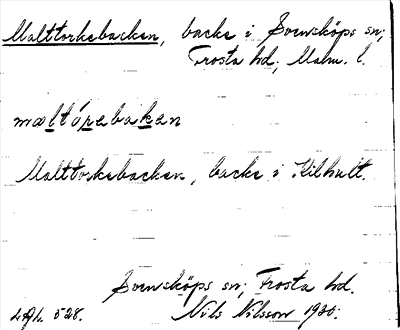 Malttorkebacken, backe i Svensköps sn;
Frosta hd; Malm. l.
mæltórebaken
Malttorkebacken, backe i Kilhult.
Svensköps sn; Frosta hd.
LAL. 528. Nils Nilsson 1930.